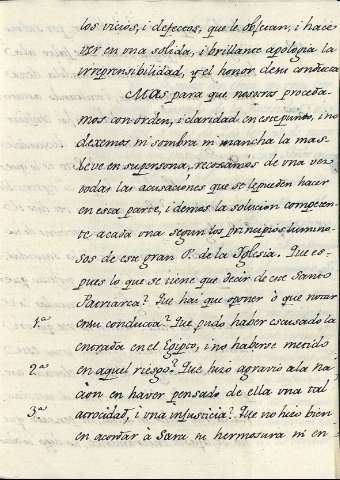 los vicios, i defectos, que le objetan, i hacer
ver en una solida, i brillante apologia la
irreprensibilidad, y el honor de su conducta
Mas para que nosotros proceda-
mos con orden, i claridad en este punto, i no
dexemos ni sombra ni mancha la mas
leve en su persona, recojamos de una vez
todas las acusaciones que se le pueden hacer
en esta parte, i demos la solucion competen-
te a cada una segun los principios lumino-
sos de este gran P. de la Iglesia. Que es
pues lo que se tiene que decir de este Santo
Patriarca? Que hai que oponer ò que notar
1.ª en su conducta? Que pudo haber escusado la
entrada en el Egipto, i no haberse metido
2.ª en aquel riesgo? Que hizo agravio a la na-
cion en haver pensado de ella una tal
3.ª atrocidad, i una injusticia? Que no hizo bien
en acordar à Sara su hermosura ni en